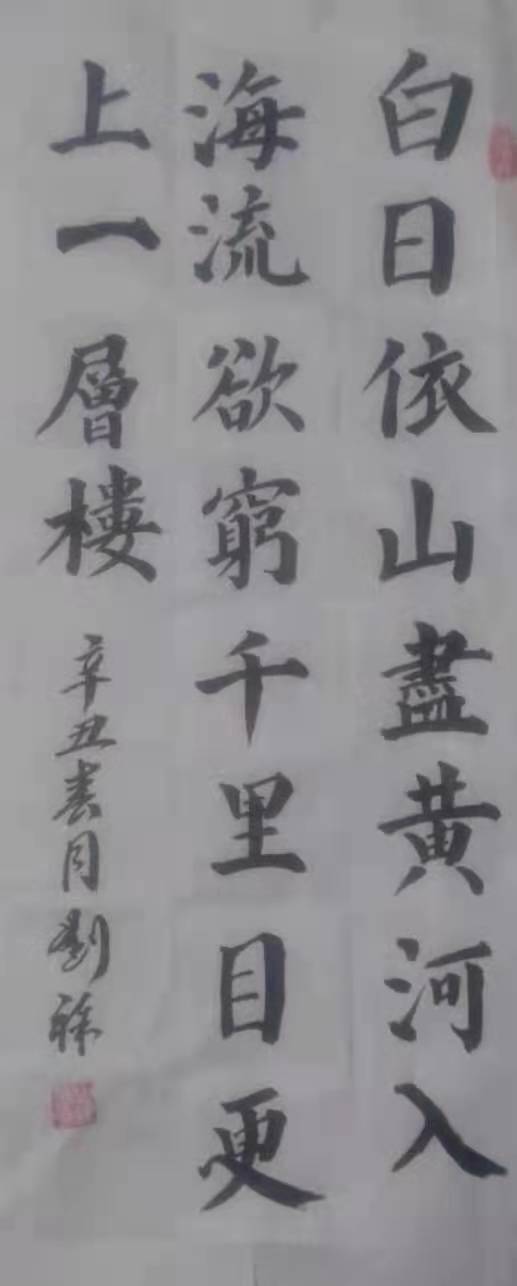 白日依山盡黄河入
海流欲窮千里目更
上一層樓
辛丑春月劉